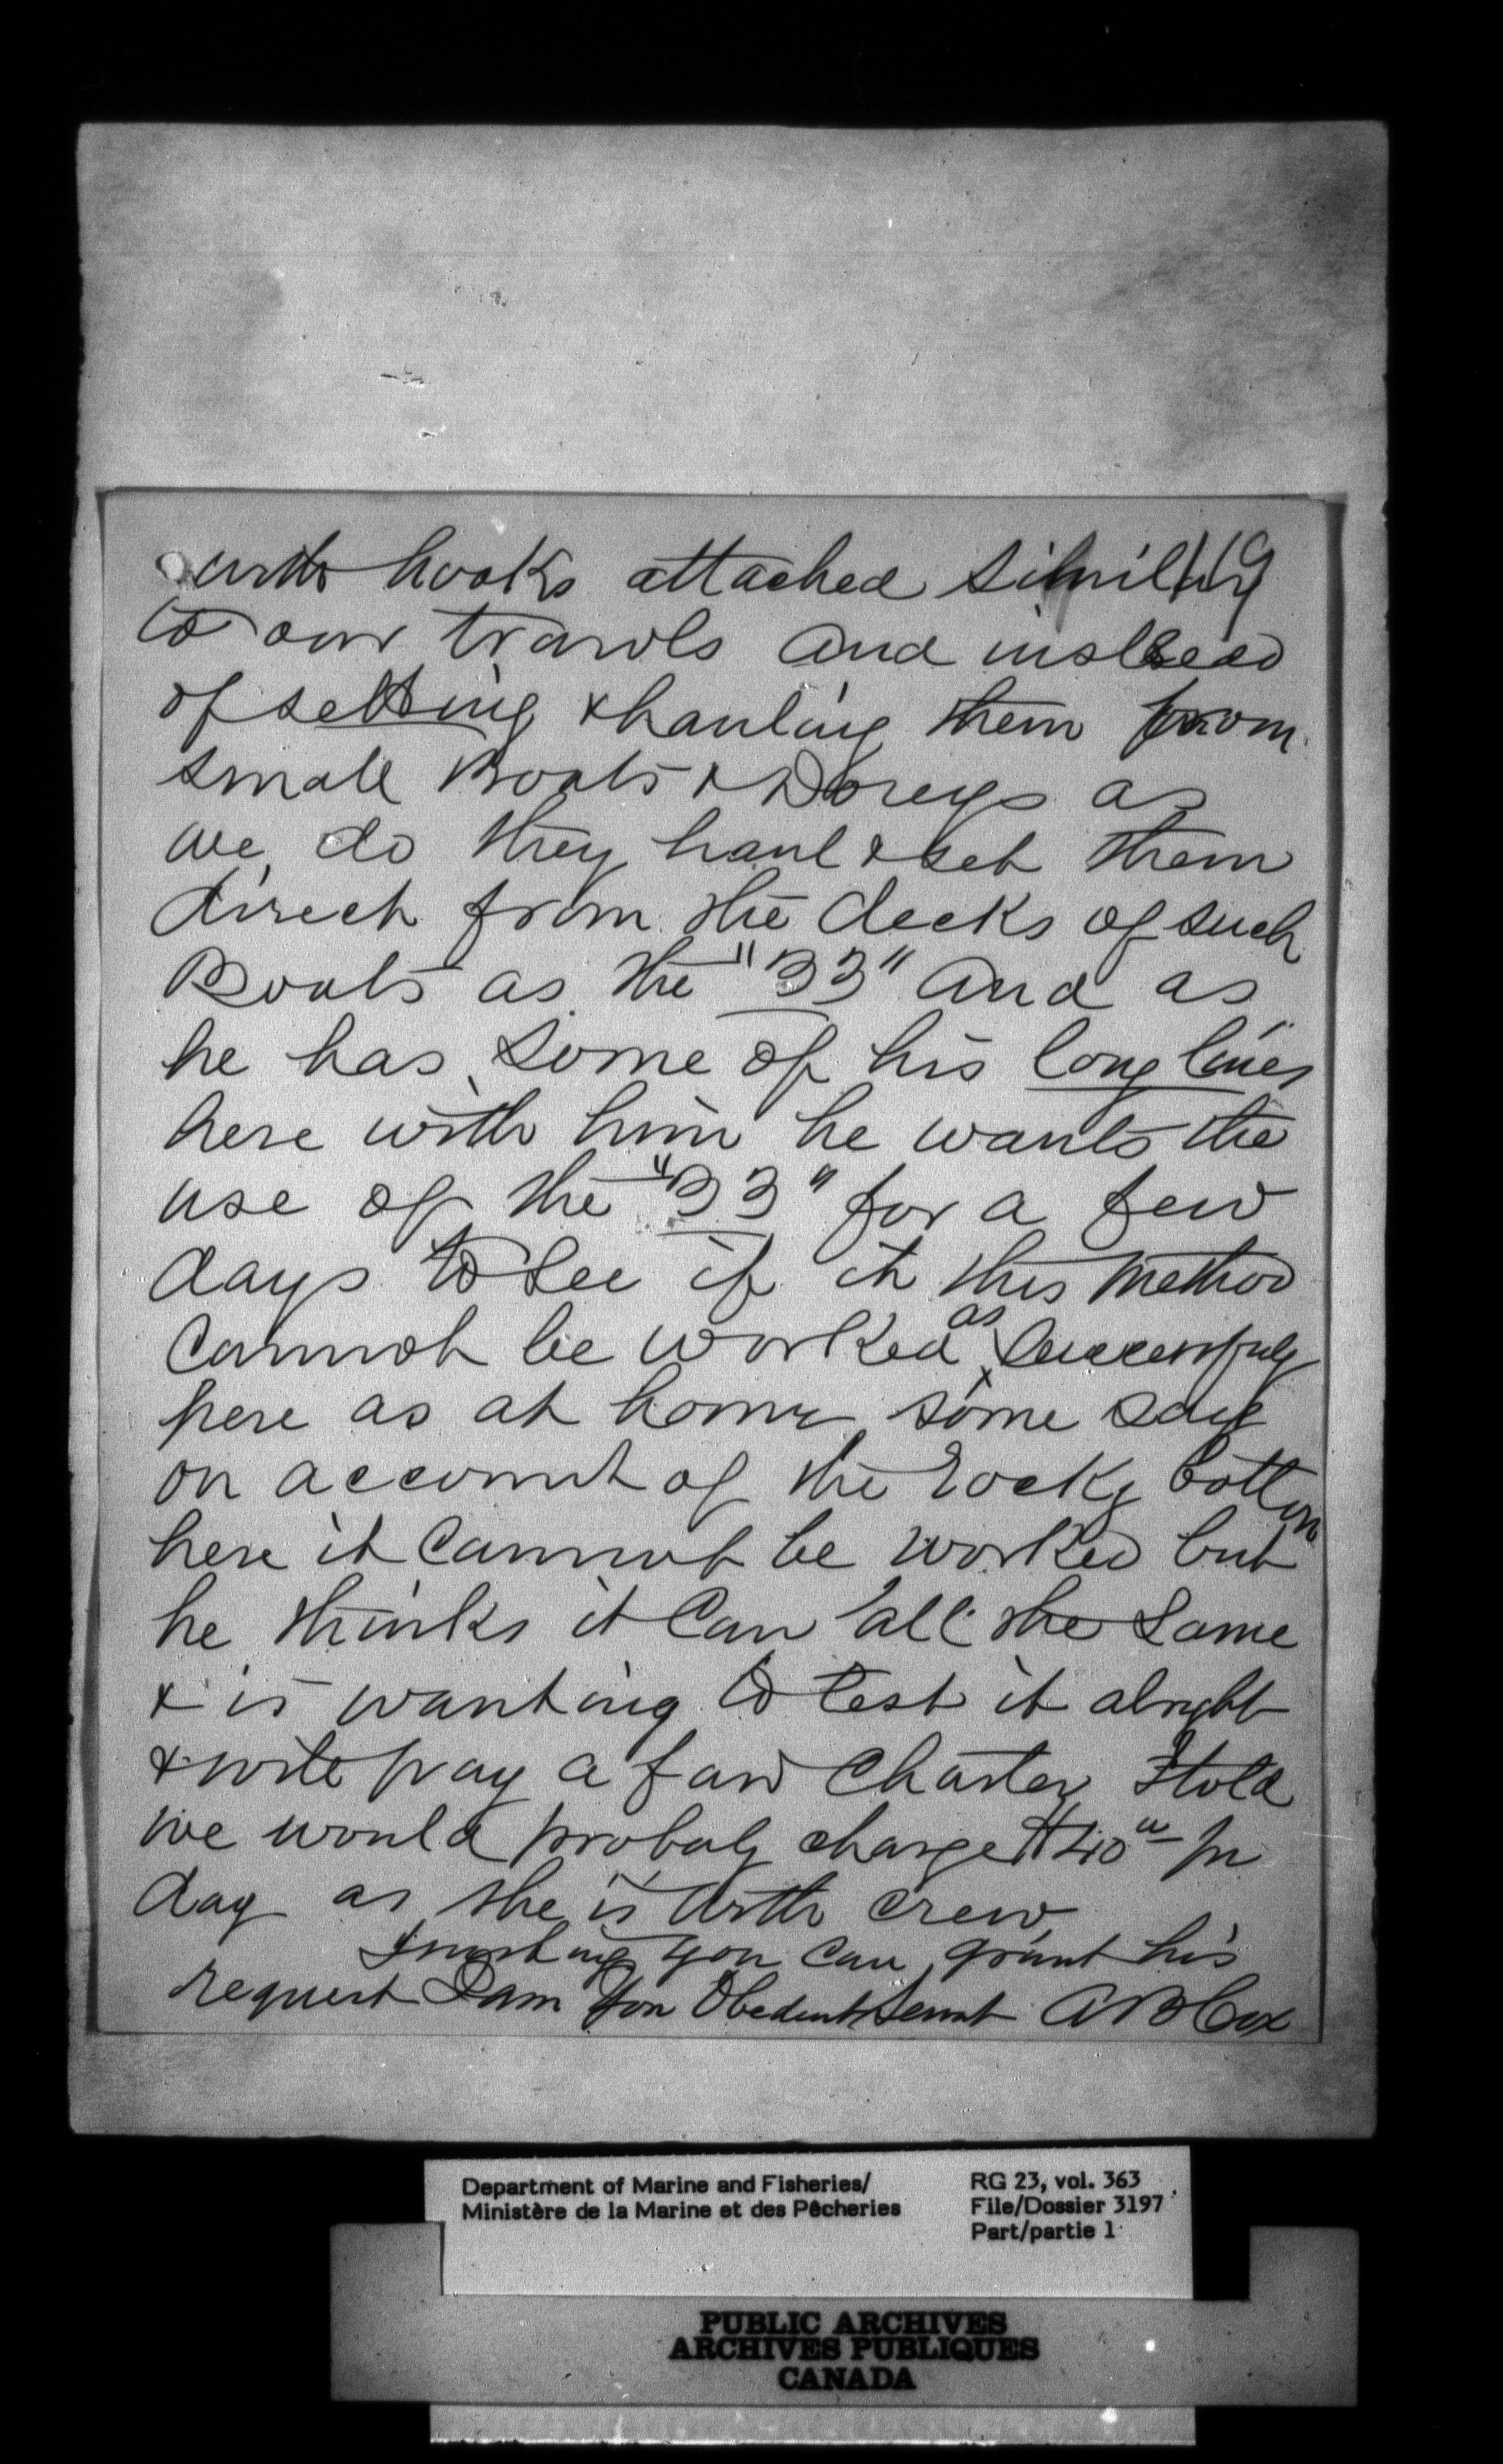 with hooks attached similar 119
to our trawls and instead
of setting & hauling them from
small Boats & Doreys as
we do they haul & set them
direct from the decks of such
Boats as the "33" and as
he has some of his long lines
here with him he wants the
use of the "33" for a few
days to see if it this method
cannot be worked as successfuly
here as at home some say
on account of the rocky bottom
here it cannot be worked but
he thinks it can all the same
& is wanting to test it alright
& will pay a fair Charter I told
we would probaly charge $40 00 per
day as she is with crew
Trusting you can grant his
request I am your Obedient Servant A B Cox
Department of Marine and Fisheries/
Ministère de la Marine et des Pêcheries
RG 23, vol. 363
File/Dossier 3197
Part/partie 1
PUBLIC ARCHIVES
ARCHIVES PUBLIQUES
CANADA